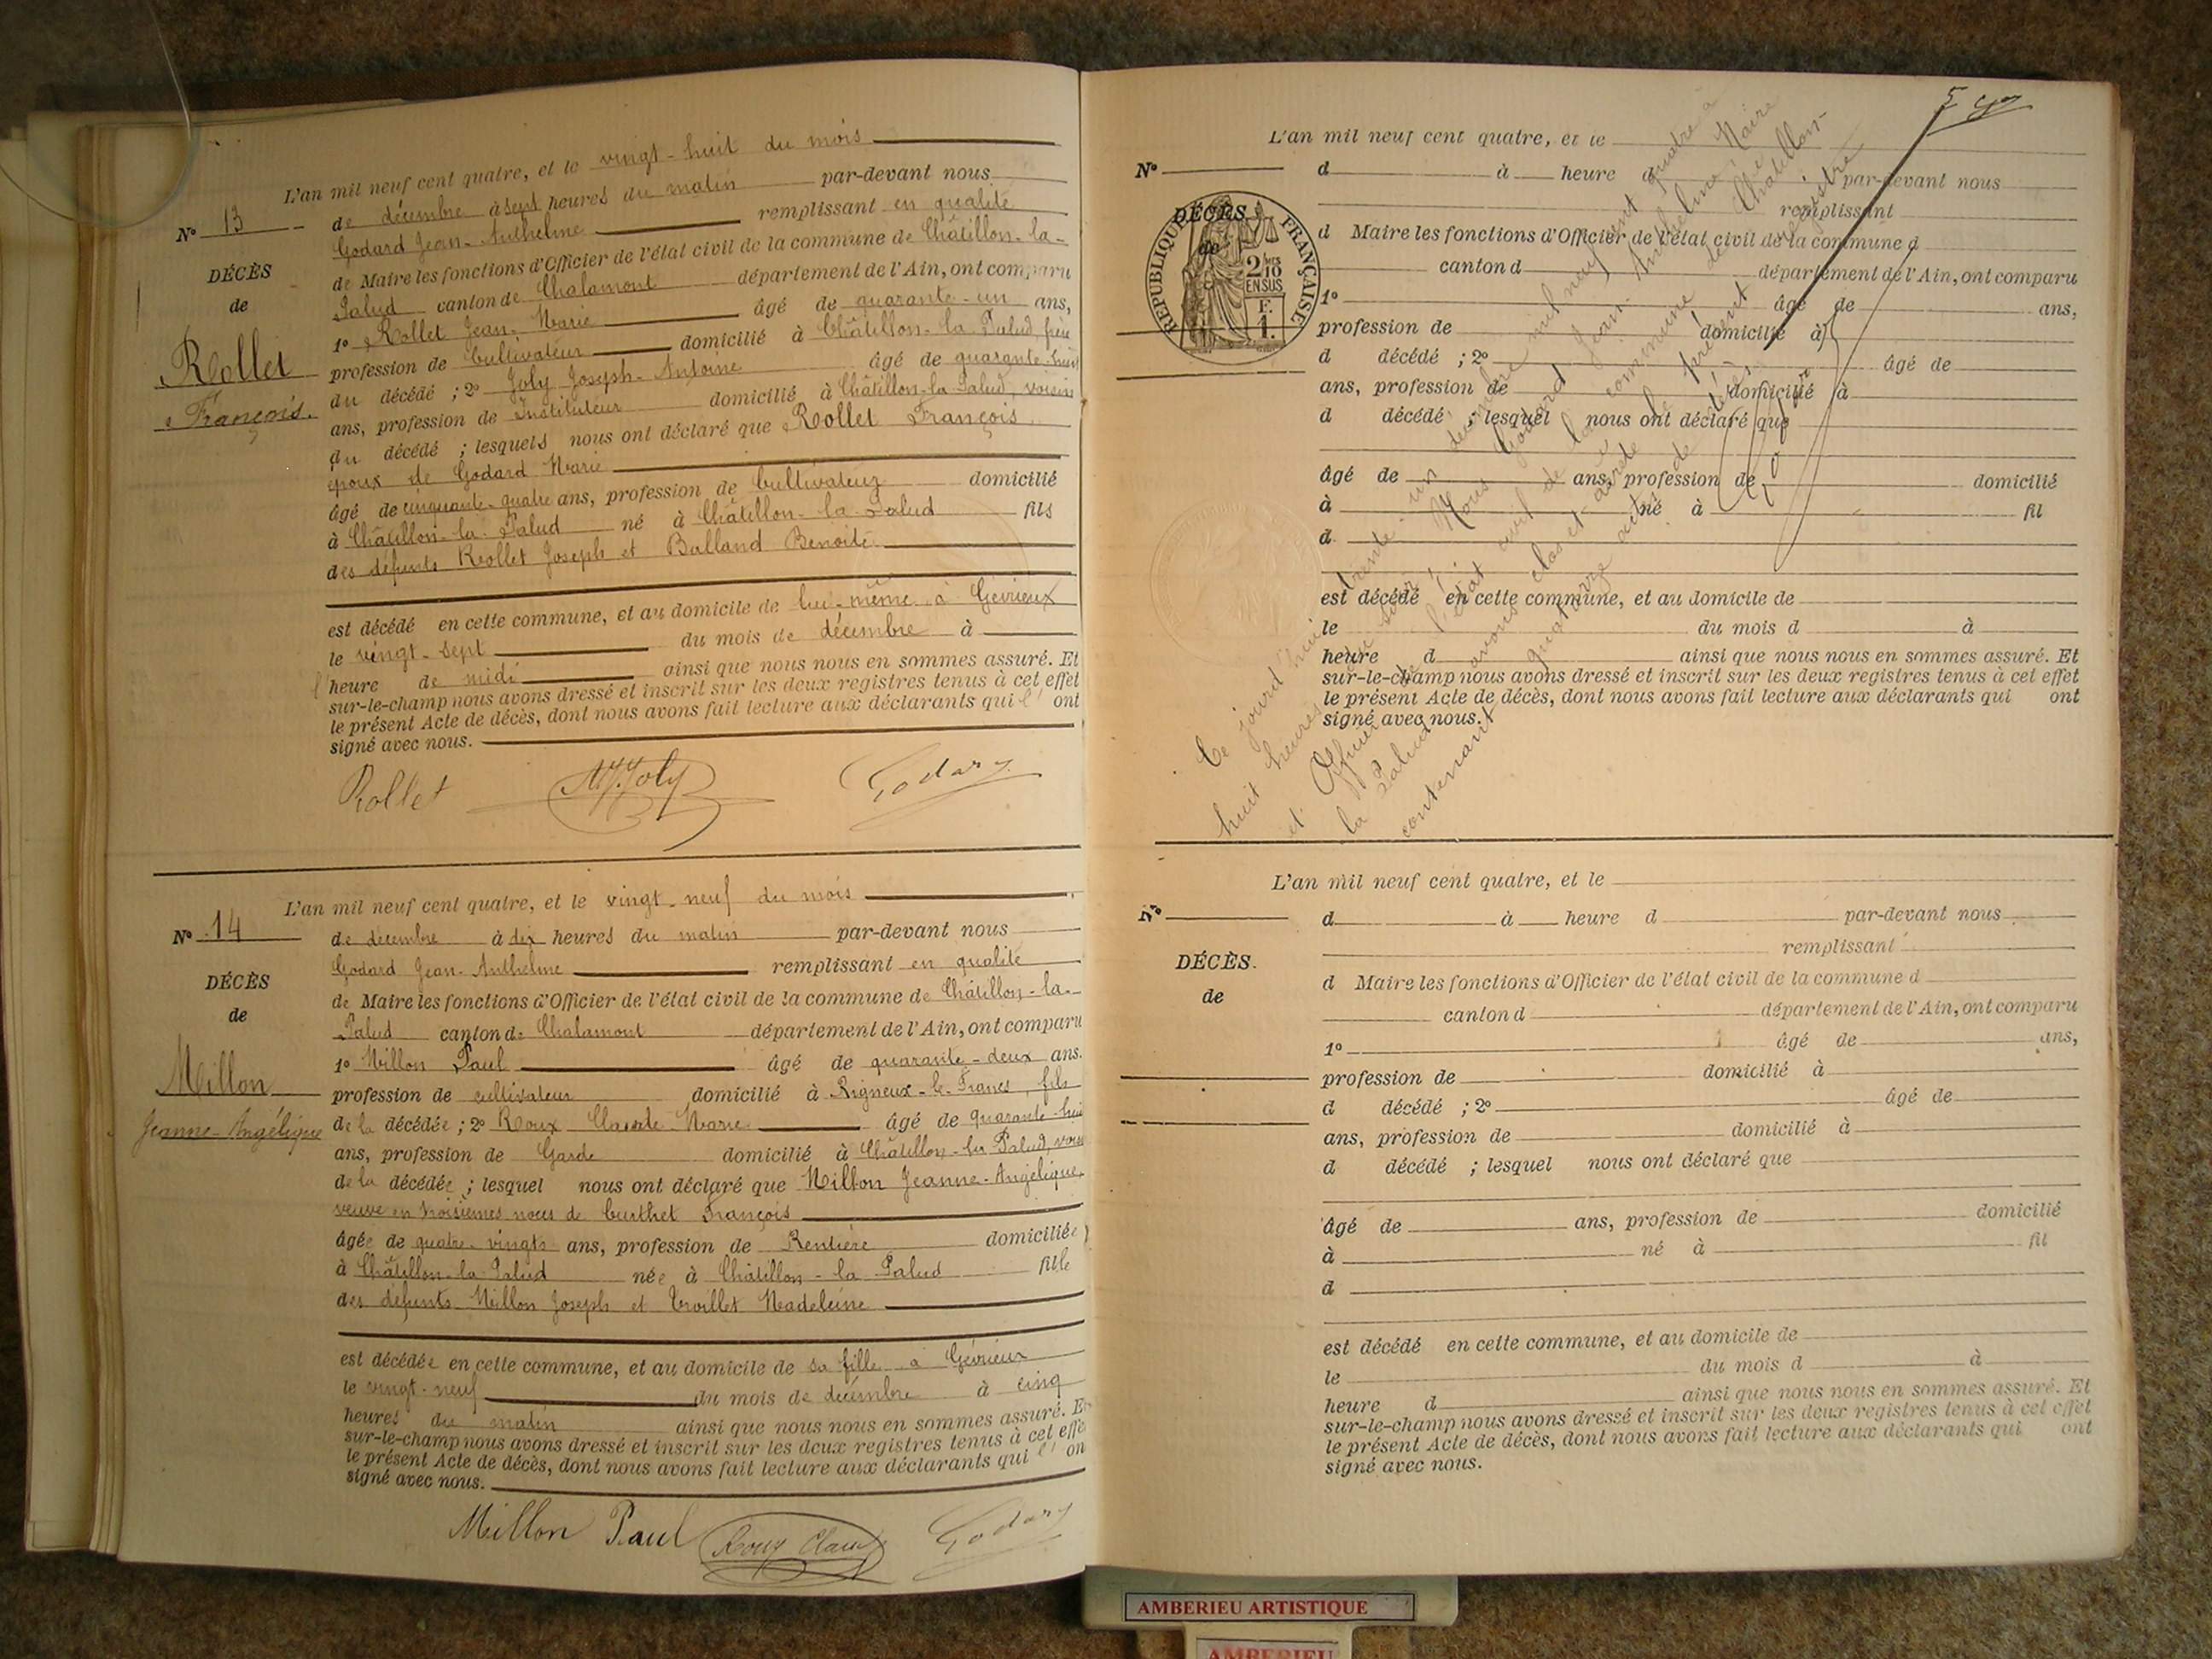 L'an mil neuf cent quatre, et le vingt-huit du mois
de décembre à sept heures du matin par-devant nous
Godard Jean-Anthelme remplissant en qualité
de Maire les fonctions d'Officier de l'état civil de la commune de Châtillon-la-
Palud canton de Chalamont département de l'Ain, ont comparu
1º Rollet Jean-Marie âgé de quarante-un ans,
profession de Cultivateur domicilié à Châtillon-la-Palud, frère
du décédé ; 2º Joly Joseph-Antoine âgé de quarante-huit
ans, profession de Instituteur domicilié à Châtillon-la-Palud, voisin
du décédé ; lesquels nous ont déclaré que Rollet François
époux de Godard Marie
âgé de cinquante-quatre ans, profession de Cultivateur domicilié
à Châtillon-la-Palud né à Châtillon-la-Palud fils
des défunts Rollet Joseph et Balland Benoite
est décédé en cette commune, et au domicile de lui-même à Gévrieux
le vingt-sept du mois de décembre à
l'heure de midi ainsi que nous nous en sommes assuré. Et
sur-le-champ nous avons dressé et inscrit sur les deux registres tenus à cet effet
le présent Acte de décès, dont nous avons fait lecture aux déclarants qui l' ont
signé avec nous.
Nº 13
DÉCÈS
de
Rollet
François
Rollet Joly Godard
L'an mil neuf cent quatre, et le vingt-neuf du mois
de décembre à dix heures du matin par-devant nous
Godard Jean-Anthelme remplissant en qualité
de Maire les fonctions d'Officier de l'état civil de la commune de Châtillon-la-
Palud canton de Chalamont département de l'Ain, ont comparu
1º Millon Paul âgé de quarante-deux ans.
profession de cultivateur domicilié à Rigneux-le-Franc, fils
de la décédée ; 2º Roux Claude-Marie âgé de quarante-huit
ans, profession de Garde domicilié à Châtillon-la-Palud, voisi
de la décédée ; lesquel nous ont déclaré que Millon Jeanne-Angélique,
veuve en troisièmes noces de Curthet François
âgée de quatre-vingts ans, profession de Rentière domiciliée
à Châtillon-la-Palud née à Châtillon-la-Palud fille
des défunts Millon Joseph et Trvillet Madeleine
est décédée en cette commune, et au domicile de sa fille à Gévrieux
le vingt-neuf du mois de décembre à cinq
heures du matin ainsi que nous nous en sommes assuré. Et
sur-le-champ nous avons dressé et inscrit sur les deux registres tenus à cet effe
le présent Acte de décès, dont nous avons fait lecture aux déclarants qui l' on
signé avec nous.
Nº 14
DÉCÈS
de
Millon
Jeanne-Angélique
Millon Paul Roux Claude Godard
L'an mil neuf cent quatre, et le
Nº d à heure d par-devant nous
remplissant
d Maire les fonctions d'Officier de l'état civil de la commune d
canton d département de l'Ain, ont comparu
1º âgé de ans,
profession de domicilié à
d décédé ; 2º âgé de
ans, profession de domicilié à
d décédé ; lesquel nous ont déclaré que
âgé de ans, profession de domicilié
à né à fil
d
est décédé en cette commune, et au domicile de
le du mois d à
heure d ainsi que nous nous en sommes assuré. Et
sur-le-champ nous avons dressé et inscrit sur les deux registres tenus à cet effet
le présent Acte de décès, dont nous avons fait lecture aux déclarants qui ont
signé avec nous.
DÉCÈS
de
RÉPUBLIQUE FRANÇAISE
2/10 EN SUS
F. 1.
Ce jourd'hui trente-un décembre mil neuf cent quatre à
huit heures du soir Nous Godard Jean-Anthelme Maire
et Officier de l'état civil de la commune de Châtillon-
la Palud avons clos et arrêté le présent registre
contenant quatorze actes de décès.
L'an mil neuf cent quatre, et le
Nº d à heure d par-devant nous
remplissant
DÉCÈS.
de
d Maire les fonctions d'Officier de l'état civil de la commune d
canton d département de l'Ain, ont comparu
1º âgé de ans,
profession de domicilié à
d décédé ; 2º âgé de
ans, profession de domicilié à
d décédé ; lesquel nous ont déclaré que
âgé de ans, profession de domicilié
à né à fil
d
est décédé en cette commune, et au domicile de
le du mois d à
heure d ainsi que nous nous en sommes assuré. Et
sur-le-champ nous avons dressé et inscrit sur les deux registres tenus à cet effet
le présent Acte de décès, dont nous avons fait lecture aux déclarants qui ont
signé avec nous.
AMBERIEU ARTISTIQUE
AMBERIEU